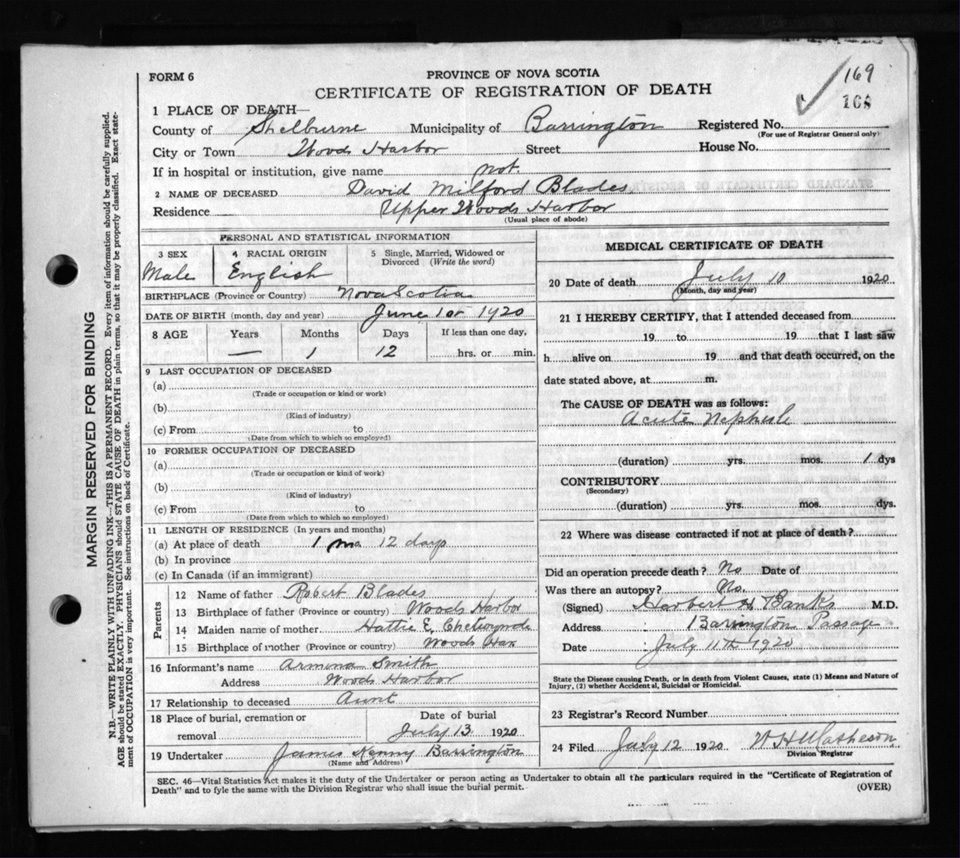 169
168
FORM 6
PROVINCE OF NOVA SCOTIA
CERTIFICATE OF REGISTRATION OF DEATH
1 PLACE OF DEATH—
County of Shelburne Municipality of Barrington Registered No.
(For use of Registrar General only)
City or Town Woods Harbor Street House No.
If in hospital or institution, give name not.
2 NAME OF DECEASED David Milford Blades
Residence Upper Woods Harbor
(Usual place of abode)
PERSONAL AND STATISTICAL INFORMATION
3 SEX 4 RACIAL ORIGIN 5 Single, Married, Widowed or Divorced (Write the word)
Male English
BIRTHPLACE (Province or Country) Nova Scotia
DATE OF BIRTH (month, day and year) June 1st 1920
8 AGE Years Months Days If less than one day,
— 1 12 hrs. or min.
9 LAST OCCUPATION OF DECEASED
(a)
(Trade or occupation or kind or work)
(b)
(Kind of industry)
(c) From to
(Date from which to which so employed)
10 FORMER OCCUPATION OF DECEASED
(a)
(Trade or occupation or kind of work)
(b)
(Kind of industry)
(c) From to
(Date from which to which so employed)
11 LENGTH OF RESIDENCE (In years and months)
(a) At place of death 1 mo 12 days
(b) In province
(c) In Canada (if an immigrant)
Parents
12 Name of father Robert Blades
13 Birthplace of father (Province or country) Woods Harbor
14 Maiden name of mother Hattie E. Chetwynde
15 Birthplace of mother (Province or country) Woods Har
16 Informant's name Armina Smith
Address Woods Harbor
17 Relationship to deceased Aunt
18 Place of burial, cremation or removal Date of burial
July 13 1920
19 Undertaker James Kenny Barrington
(Name and Address)
MEDICAL CERTIFICATE OF DEATH
20 Date of death July 10 1920
(Month, day and year)
21 I HEREBY CERTIFY, that I attended deceased from
19 to 19 that I last saw
h alive on 19 and that death occurred, on the
date stated above, at m.
The CAUSE OF DEATH was as follows:
Acute
(duration) yrs. mos. 1 dys
CONTRIBUTORY
(Secondary)
(duration) yrs. mos. dys
22 Where was disease contracted if not at place of death?
Did an operation precede death? No Date of
Was there an autopsy? No.
(Signed) Harbert H. Banks M.D.
Address Barrington Passage
Date July 11th 1920
State the Disease causing Death, or in death from Violent Causes, state (1) Means and Nature of
Injury, (2) whether Accidental, Suicidal or Homicidal.
23 Registrar's Record Number
24 Filed July 12 1920 W H Matheson
Division Registrar
SEC. 46—Vital Statistics Act makes it the duty of the Undertaker or person acting as Undertaker to obtain all the particulars required in the "Certificate of Registration of
Death" and to fyle the same with the Division Registrar who shall issue the burial permit.
(OVER)
MARGIN RESERVED FOR BINDING
N.B.—WRITE PLAINLY WITH UNFADING INK—THIS IS A PERMANENT RECORD. Every item of information should be carefully supplied.
AGE should be stated EXACTLY. PHYSICIANS should STATE CAUSE OF DEATH in plain terms, so that it may be properly classified. Exact statement
of OCCUPATION is very important. See instructions on back of Certificate.